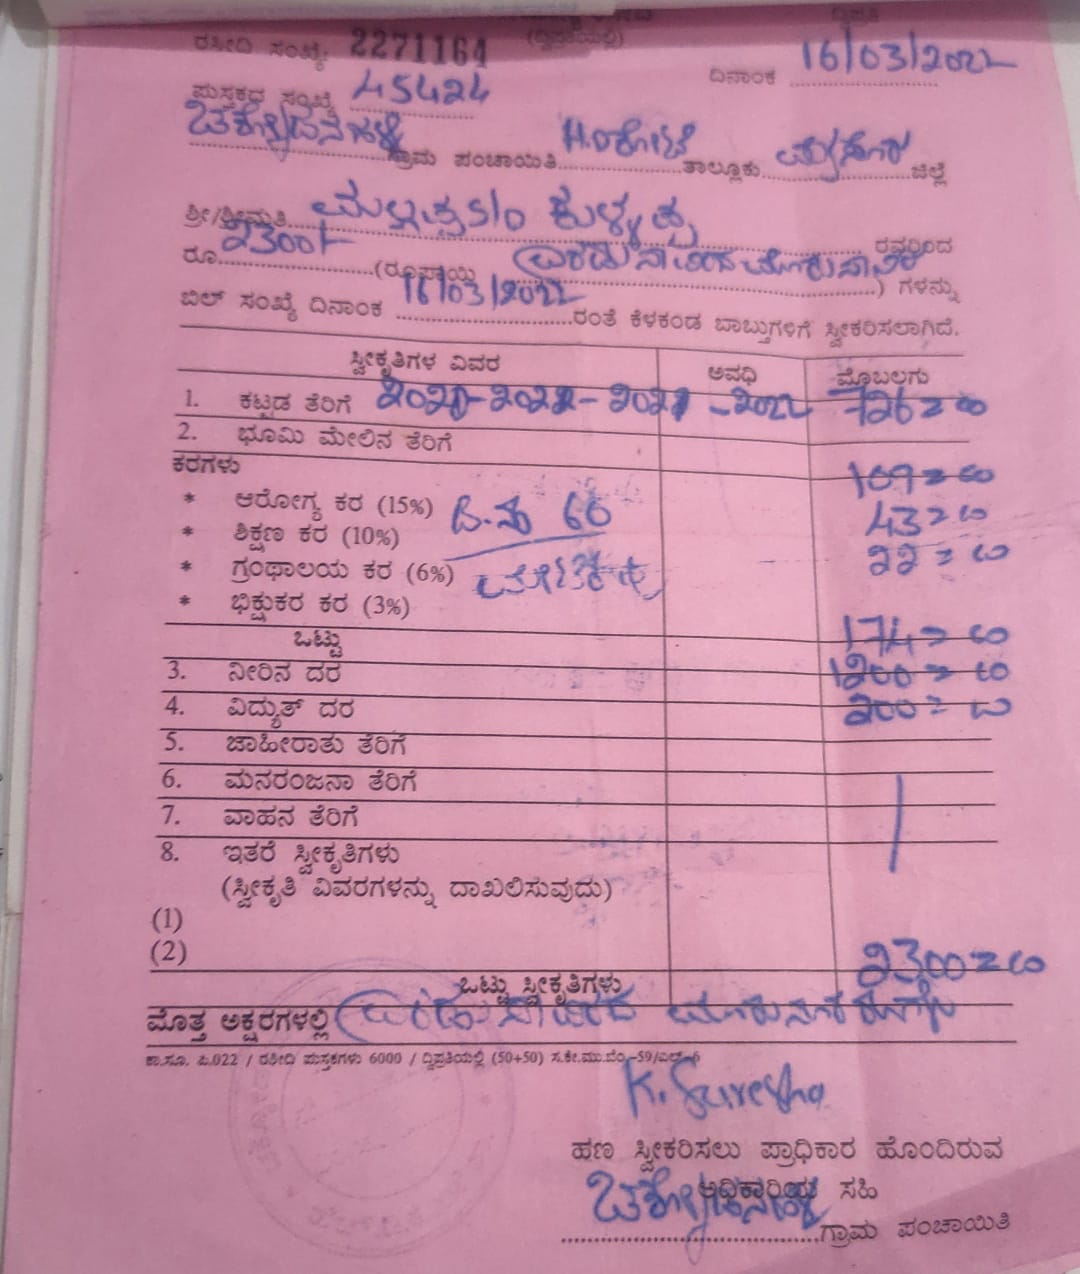 (ದ್ವಿಪ್ರತಿಯಲ್ಲಿ)
ರಶೀದಿ ಸಂಖ್ಯೆ: 2271164
ದಿನಾಂಕ 16/03/2022
ಪುಸ್ತಕದ ಸಂಖ್ಯೆ 45424
ಗ್ರಾಮ ಪಂಚಾಯಿತಿ H.ಡಿ.ಕೋಟೆ ತಾಲ್ಲೂಕು ಮೈಸೂರು ಜಿಲ್ಲೆ
ಶ್ರೀ/ಶ್ರೀಮತಿ ಮಲ್ಲಪ್ಪ S/o ಕುಳ್ಳಪ್ಪ ರವರಿಂದ
ರೂ 2300/- (ರೂಪಾಯಿ ಎರಡು ಸಾವಿರದ ) ಗಳನ್ನು
ಬಿಲ್ ಸಂಖ್ಯೆ ದಿನಾಂಕ 16/03/2022 ರಂತೆ ಕೆಳಕಂಡ ಬಾಬ್ತುಗಳಿಗೆ ಸ್ವೀಕರಿಸಲಾಗಿದೆ.
ಸ್ವೀಕೃತಿಗಳ ವಿವರ ಅವಧಿ ಮೊಬಲಗು
1. ಕಟ್ಟಡ ತೆರಿಗೆ 726=00
2. ಭೂಮಿ ಮೇಲಿನ ತೆರಿಗೆ
ಕರಗಳು
* ಆರೋಗ್ಯ ಕರ (15%) 109=00
* ಶಿಕ್ಷಣ ಕರ (10%) 43=00
* ಗ್ರಂಥಾಲಯ ಕರ (6%) 22=00
* ಭಿಕ್ಷುಕರ ಕರ (3%)
ಒಟ್ಟು 174=00
3. ನೀರಿನ ದರ 1200=00
4. ವಿದ್ಯುತ್ ದರ 200=00
5. ಜಾಹೀರಾತು ತೆರಿಗೆ
6. ಮನರಂಜನಾ ತೆರಿಗೆ
7. ವಾಹನ ತೆರಿಗೆ
8. ಇತರೆ ಸ್ವೀಕೃತಿಗಳು
(ಸ್ವೀಕೃತಿ ವಿವರಗಳನ್ನು ದಾಖಲಿಸುವುದು)
(1)
(2)
ಒಟ್ಟು ಸ್ವೀಕೃತಿಗಳು 2300=00
ಮೊತ್ತ ಅಕ್ಷರಗಳಲ್ಲಿ (ಎರಡು ಸಾವಿರದ
ಕಾ.ಸೂ. ಪಿ.022 / ರಶೀದಿ ಪುಸ್ತಕಗಳು 6000 / ದ್ವಿಪ್ರತಿಯಲ್ಲಿ (50+50) ಸ.ಕೇ.ಮು.ಬೆಂ.-59/ಎಲ್-6
K. Suresha
ಹಣ ಸ್ವೀಕರಿಸಲು ಪ್ರಾಧಿಕಾರ ಹೊಂದಿರುವ
ಅಧಿಕಾರಿಯ ಸಹಿ
ಗ್ರಾಮ ಪಂಚಾಯಿತಿ